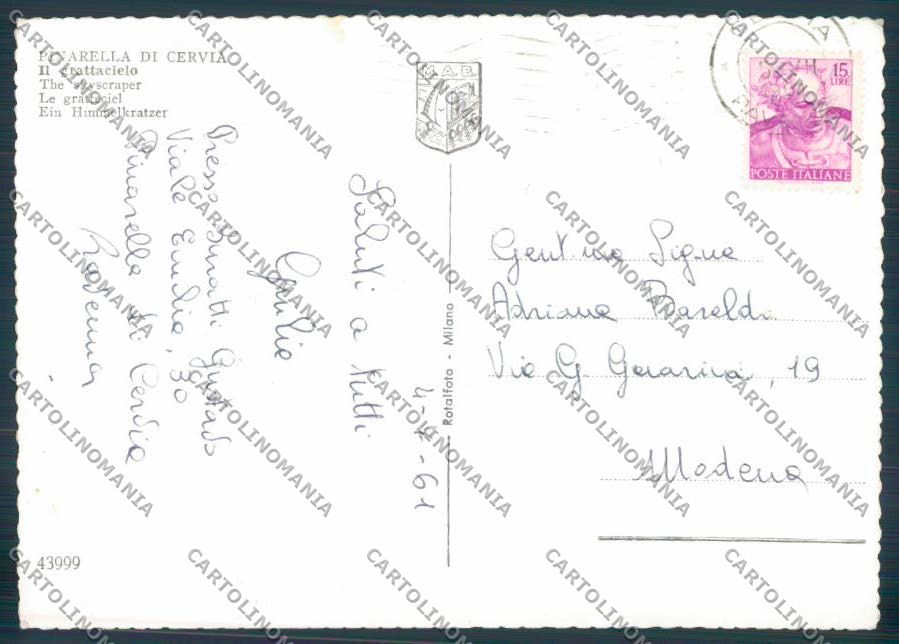 PINARELLA DI CERVIA
Il grattacielo
The skyscraper
Le gratteciel
Ein Himmelkratzer
M.A.B.
15 LIRE
POSTE ITALIANE
4-7-61
Saluti a tutti
Giulio
Presso Gustavo
Viale Emilia, 30
Pinarella di Cervia
Ravenna
Rotalfoto - Milano
Gent.ma Sig.na
Adriana Baraldi
Via G. 19
Modena
43999
CARTOLINOMANIA